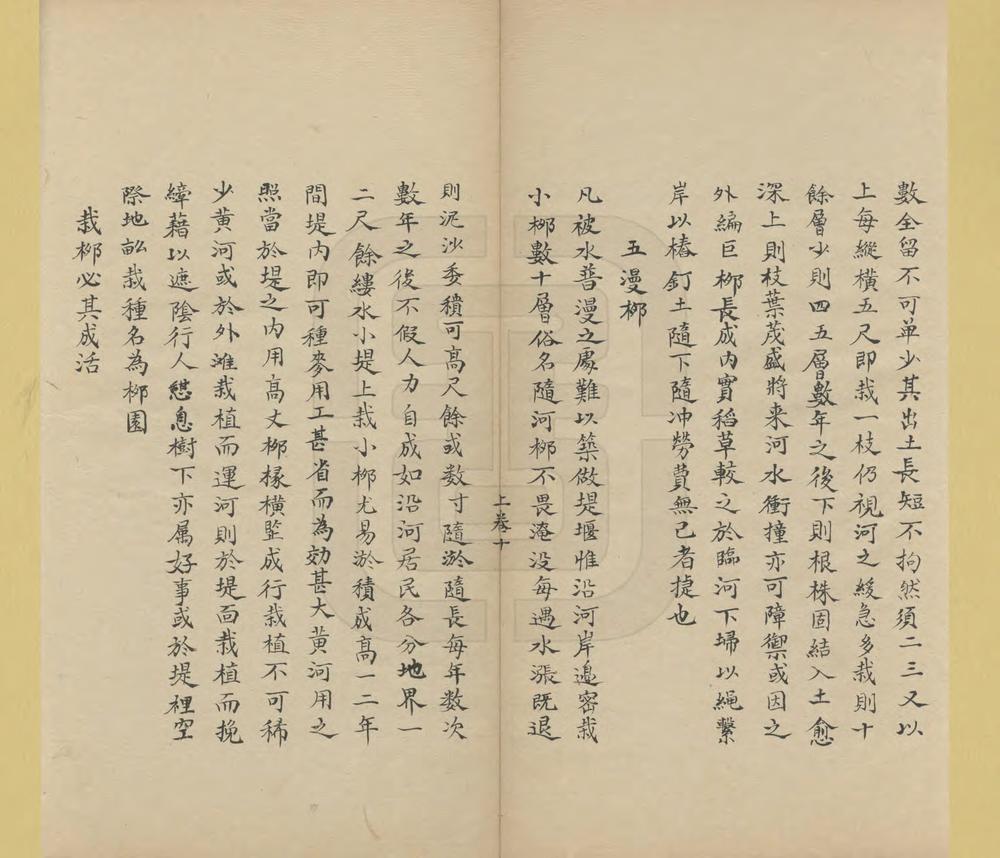 數全留不可单少其出土長短不拘然須二三又以
上每縱橫五尺即栽一枝仍視河之緩急多栽則十
餘層少則四五層數年之後下則根株固結入土愈
深上則枝葉茂盛將来河水衝撞亦可障禦或因之
外編巨栁長成內實稻草較之於臨河下埽以繩繫
岸以樁釘土隨下隨冲勞費無已者捷也
五漫栁
凡被水普漫之處難以築做堤堰惟沿河岸邉密栽
小栁數十層俗名隨河栁不畏淹没每遇水漲既退
則泥沙委積可高尺餘或数寸隨淤隨長每年数次
數年之後不假人力自成如沿河居民各分地界一
二尺餘縷水小堤上栽小栁尤易淤積成高一二年
間堤內即可種麥用工甚省而為効甚大黄河用之
照當於堤之內用高丈栁椽橫竪成行栽植不可稀
少黄河或於外滩栽植而運河則於堤面栽植而挽
縴藉以遮陰行人憇息樹下亦属好事或於堤裡空
際地畝栽種名為栁園
栽栁必其成活
上卷十